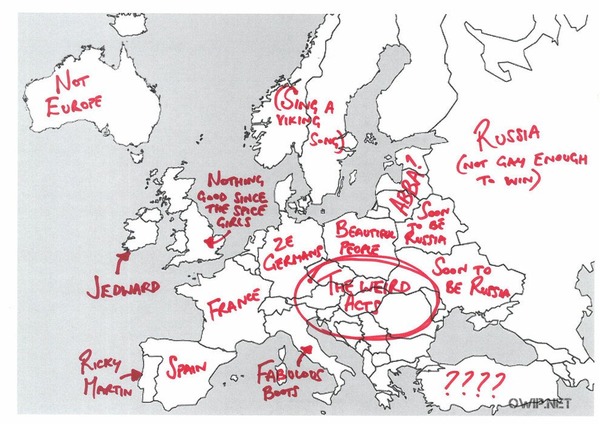 NOT
EUROPE
(SING A
VIKING
SONG)
RUSSIA
(NOT GAY ENOUGH
TO WIN)
NOTHING
GOOD SINCE
THE SPICE
GIRLS
ABBA?
SOON
TO BE
RUSSIA
BEAUTIFUL
PEOPLE
ZE
GERMANS
SOON TO
BE RUSSIA
JEDWARD
FRANCE
THE WEIRD
ACTS
RICKY
MARTIN
SPAIN
FABULOUS
BOOTS
????
QWIP.NET